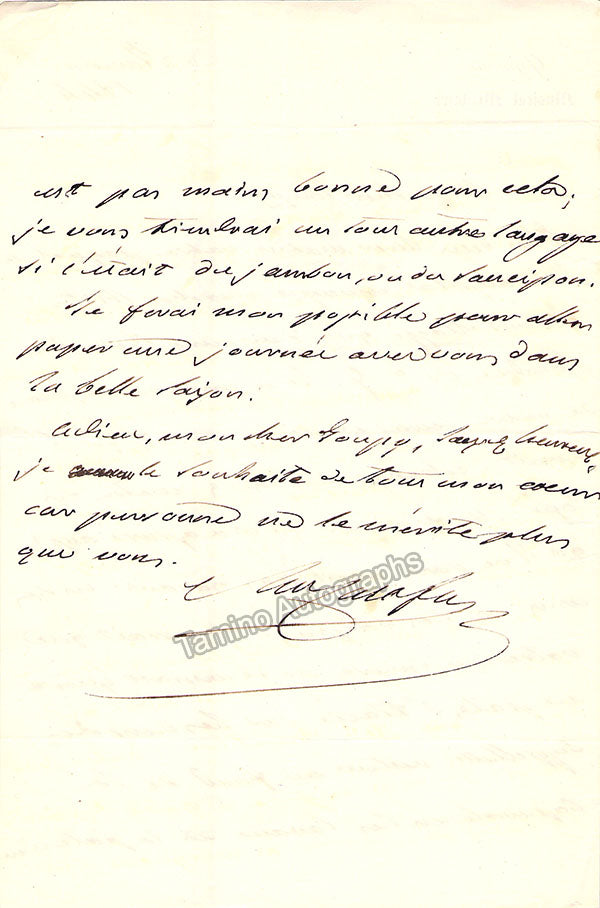 est pas moins bonne pour cela;
je vous tiendrai un tout autre langage
si c'était du jambon, ou du saucisson.
Je ferai mon possible pour aller
passer une journée avec vous dans
la belle saison.
Adieu, mon cher Goupy, soyez heureux,
je le souhaite de tout mon coeur
car personne ne le mérite plus
que vous.
Tamino Autographs